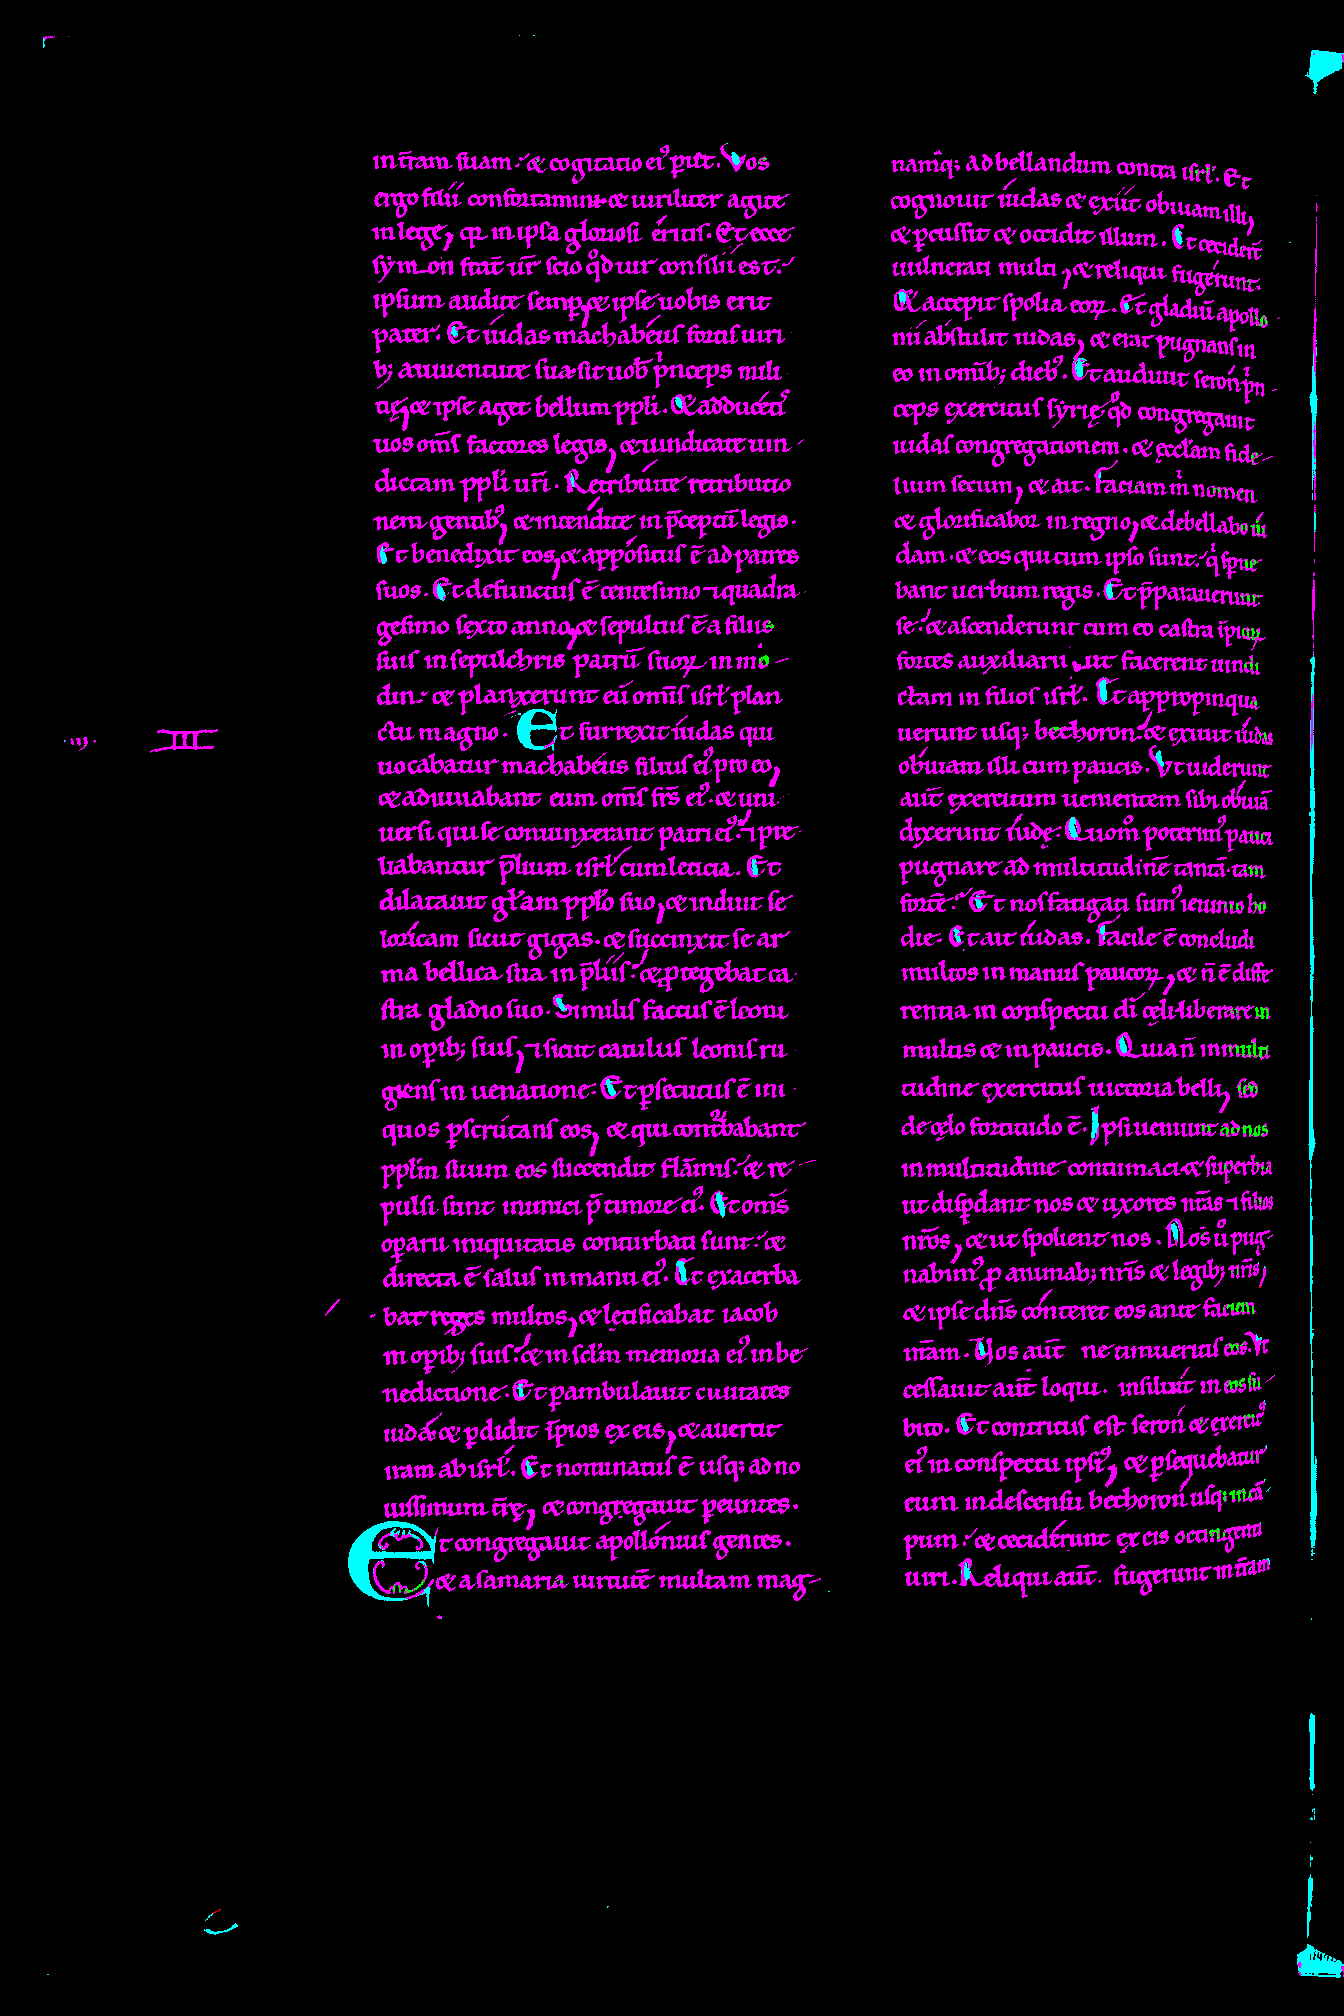 in t̄ram suam. & cogitatio ei' p̱iet. Vos
ergo filii confortamini & uiriliter agite
in lege, q̱ in ipsa gloriosi eritis. Et ecce
symon frat̄ ur̄ scio qd uir consilii est.
ipsum audite semp̱, & ipse uobis erit
pater. Et iudas machabeus fortis uiri
b; a iuuentute sua sit uob̄ p̍nceps mili
tię, & ipse aget bellum ppl̄i. Et adducet̍
uos om̄s factores legis, & uindicate uin
dictam ppl̄i ur̄i. Retribuite retributio
nem gentib', & intendite in p̄ceptū legis.
Et benedixit eos, & appositus ē ad patres
suos. Et defunctus ē centesimo ⁊ quadra
gesimo sexto anno, & sepultus ē a filiis
suis in sepulchris patrū suoꝝ in mo
din. & planxerunt eū om̄is isrl̄ plan
ctu magno. Et surrexit iudas qui
uocabatur machabeus filius ei' pro eo,
& adiuuabant eum om̄s fr̄s ei'. & uni
uersi qui se coniunxerant patri ei'. ⁊ pre
liabantur p̄lium isrl̄ cum leticia. Et
dilatauit gl̄am ppl̄o suo, & induit se
loricam sicut gigas. & succinxit se ar
ma bellica sua in p̄liis. & p̱tegebat ca
stra gladio suo. Similis factus ē leoni
in op̱ib; suis, ⁊ sicut catulus leonis ru
giens in uenatione. Et p̱secutus ē ini
quos p̱scrutans eos, & qui conturbabant
ppl̄m suum eos succendit flāmis. & re
pulsi sunt inimici p̄ timore ei'. Et om̄s
op̱arii iniquitatis conturbati sunt. &
directa ē salus in manu ei'. Et exacerba
bat reges multos, & lętificabat iacob
in op̱ib; suis. & in scl̄m memoria ei' in be
nedictione. Et p̱ambulauit ciuitates
iuda & p̱didit īpios ex eis, & auertit
iram ab isrl̄. Et nominatus ē usq; ad no
uissimum t̄rę, & congregauit pereuntes.
Et congregauit apollonius gentes.
& a samaria uirtutē multam mag
III
nāq; ad bellandum contra isrl̄. Et
cognouit iudas & exiit obuiam illi,
& p̱cussit & occidit illum. Et cecider̄t
uulnerati multi, & reliqui fugerunt.
Et accepit spolia eoꝝ. Et gladiū apollo
nii abstulit iudas, & erat pugnans in
eo in omīb; dieb'. Et audiuit seron p̍n
ceps exercitus syrię. qd congregauit
iudas congregationem. & eccl̄am fide
lium secum, & ait. Faciam m̍ nomen
& glorificabor in regno, & debellabo iu
dam. & eos qui cum ipso sunt. q̍ sp̱ne
bant uerbum regis. Et p̄parauerunt
se. & ascenderunt cum eo castra īpioꝝ
fortes auxiliarii, ut facerent uindi
ctam in filios isrl̄. Et appropinqua
uerunt usq; bethoron. & exiuit iudas
obuiam illi cum paucis. Vt uiderunt
aut̄ exercitum uenientem sibi obuiā
dixerunt iudę. Quom̊ poterim' pauci
pugnare ad multitudinē tantā. tam
fortē. Et nos fatigati sum' ieiunio ho
die. Et ait iudas. Facile ē concludi
multos in manus paucoꝝ, & n̄ ē diffe
rentia in conspectu di̅ cęli. liberare in
multis & in paucis. Quia n̄ in multi
tudine exercitus uictoria belli, sed
de cęlo fortitudo ē. Ipsi ueniunt ad nos
in multitudine contumaci & superbia
ut disp̱dant nos & uxores nr̄as ⁊ filios
nr̄os, & ut spolient nos. Nos u̍ pug
nabim' p̱ animab; nr̄is & legib; nr̄is,
& ipse dn̄s conteret eos ante faciem
nr̄am. Vos aut̄ ne timueritis eos. Vt
cessauit aut̄ loqui. insiluit in eos su
bito. Et contritus est seron & exercit'
ei' in conspectu ipsi', & p̱sequebatur
eum in descensu bethoron usq; in cā
pum. & ceciderunt ex eis octingenti
uiri. Reliqui aut̄ fugerunt in t̄ram